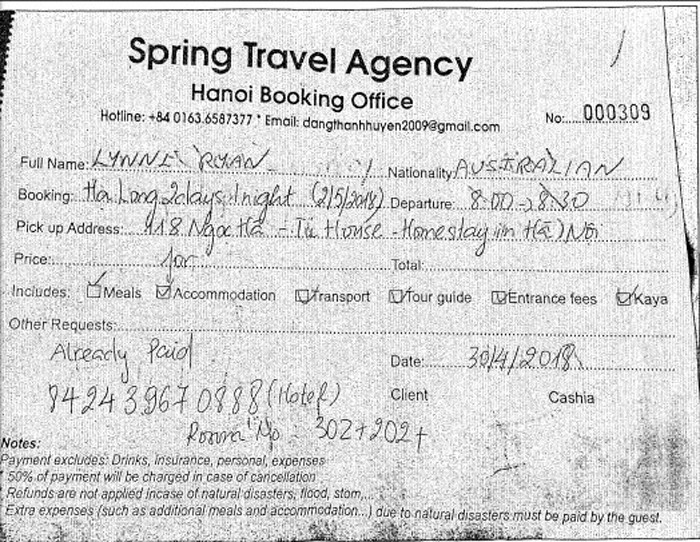 Spring Travel Agency
Hanoi Booking Office
Hotline: +84 0163.6587377 * Email: dangthanhhuyen2009@gmail.com
No:.....000309
Full Name: LYNNE RYAN Nationality: AUSTRALIAN
Booking: Ha Long 2days 1night (2/5/2018) Departure: 8:00 -> 8:30
Pick up Address: 418 Ngọc Hà - Tü House - Homestay in Hà Nội
Price: for Total:
Includes: Meals Accommodation Transport Tour guide Entrance fees Kaya
Other Requests:
Already Paid Date: 30/4/2018
84243 9670888 (Hotel) Client Cashia
Room No: 302+202+
Notes:
Payment excludes: Drinks, insurance, personal, expenses
50% of payment will be charged in case of cancellation
Refunds are not applied incase of natural disasters, flood, stom,...
Extra expenses (such as additional meals and accommodation...) due to natural disasters must be paid by the guest.